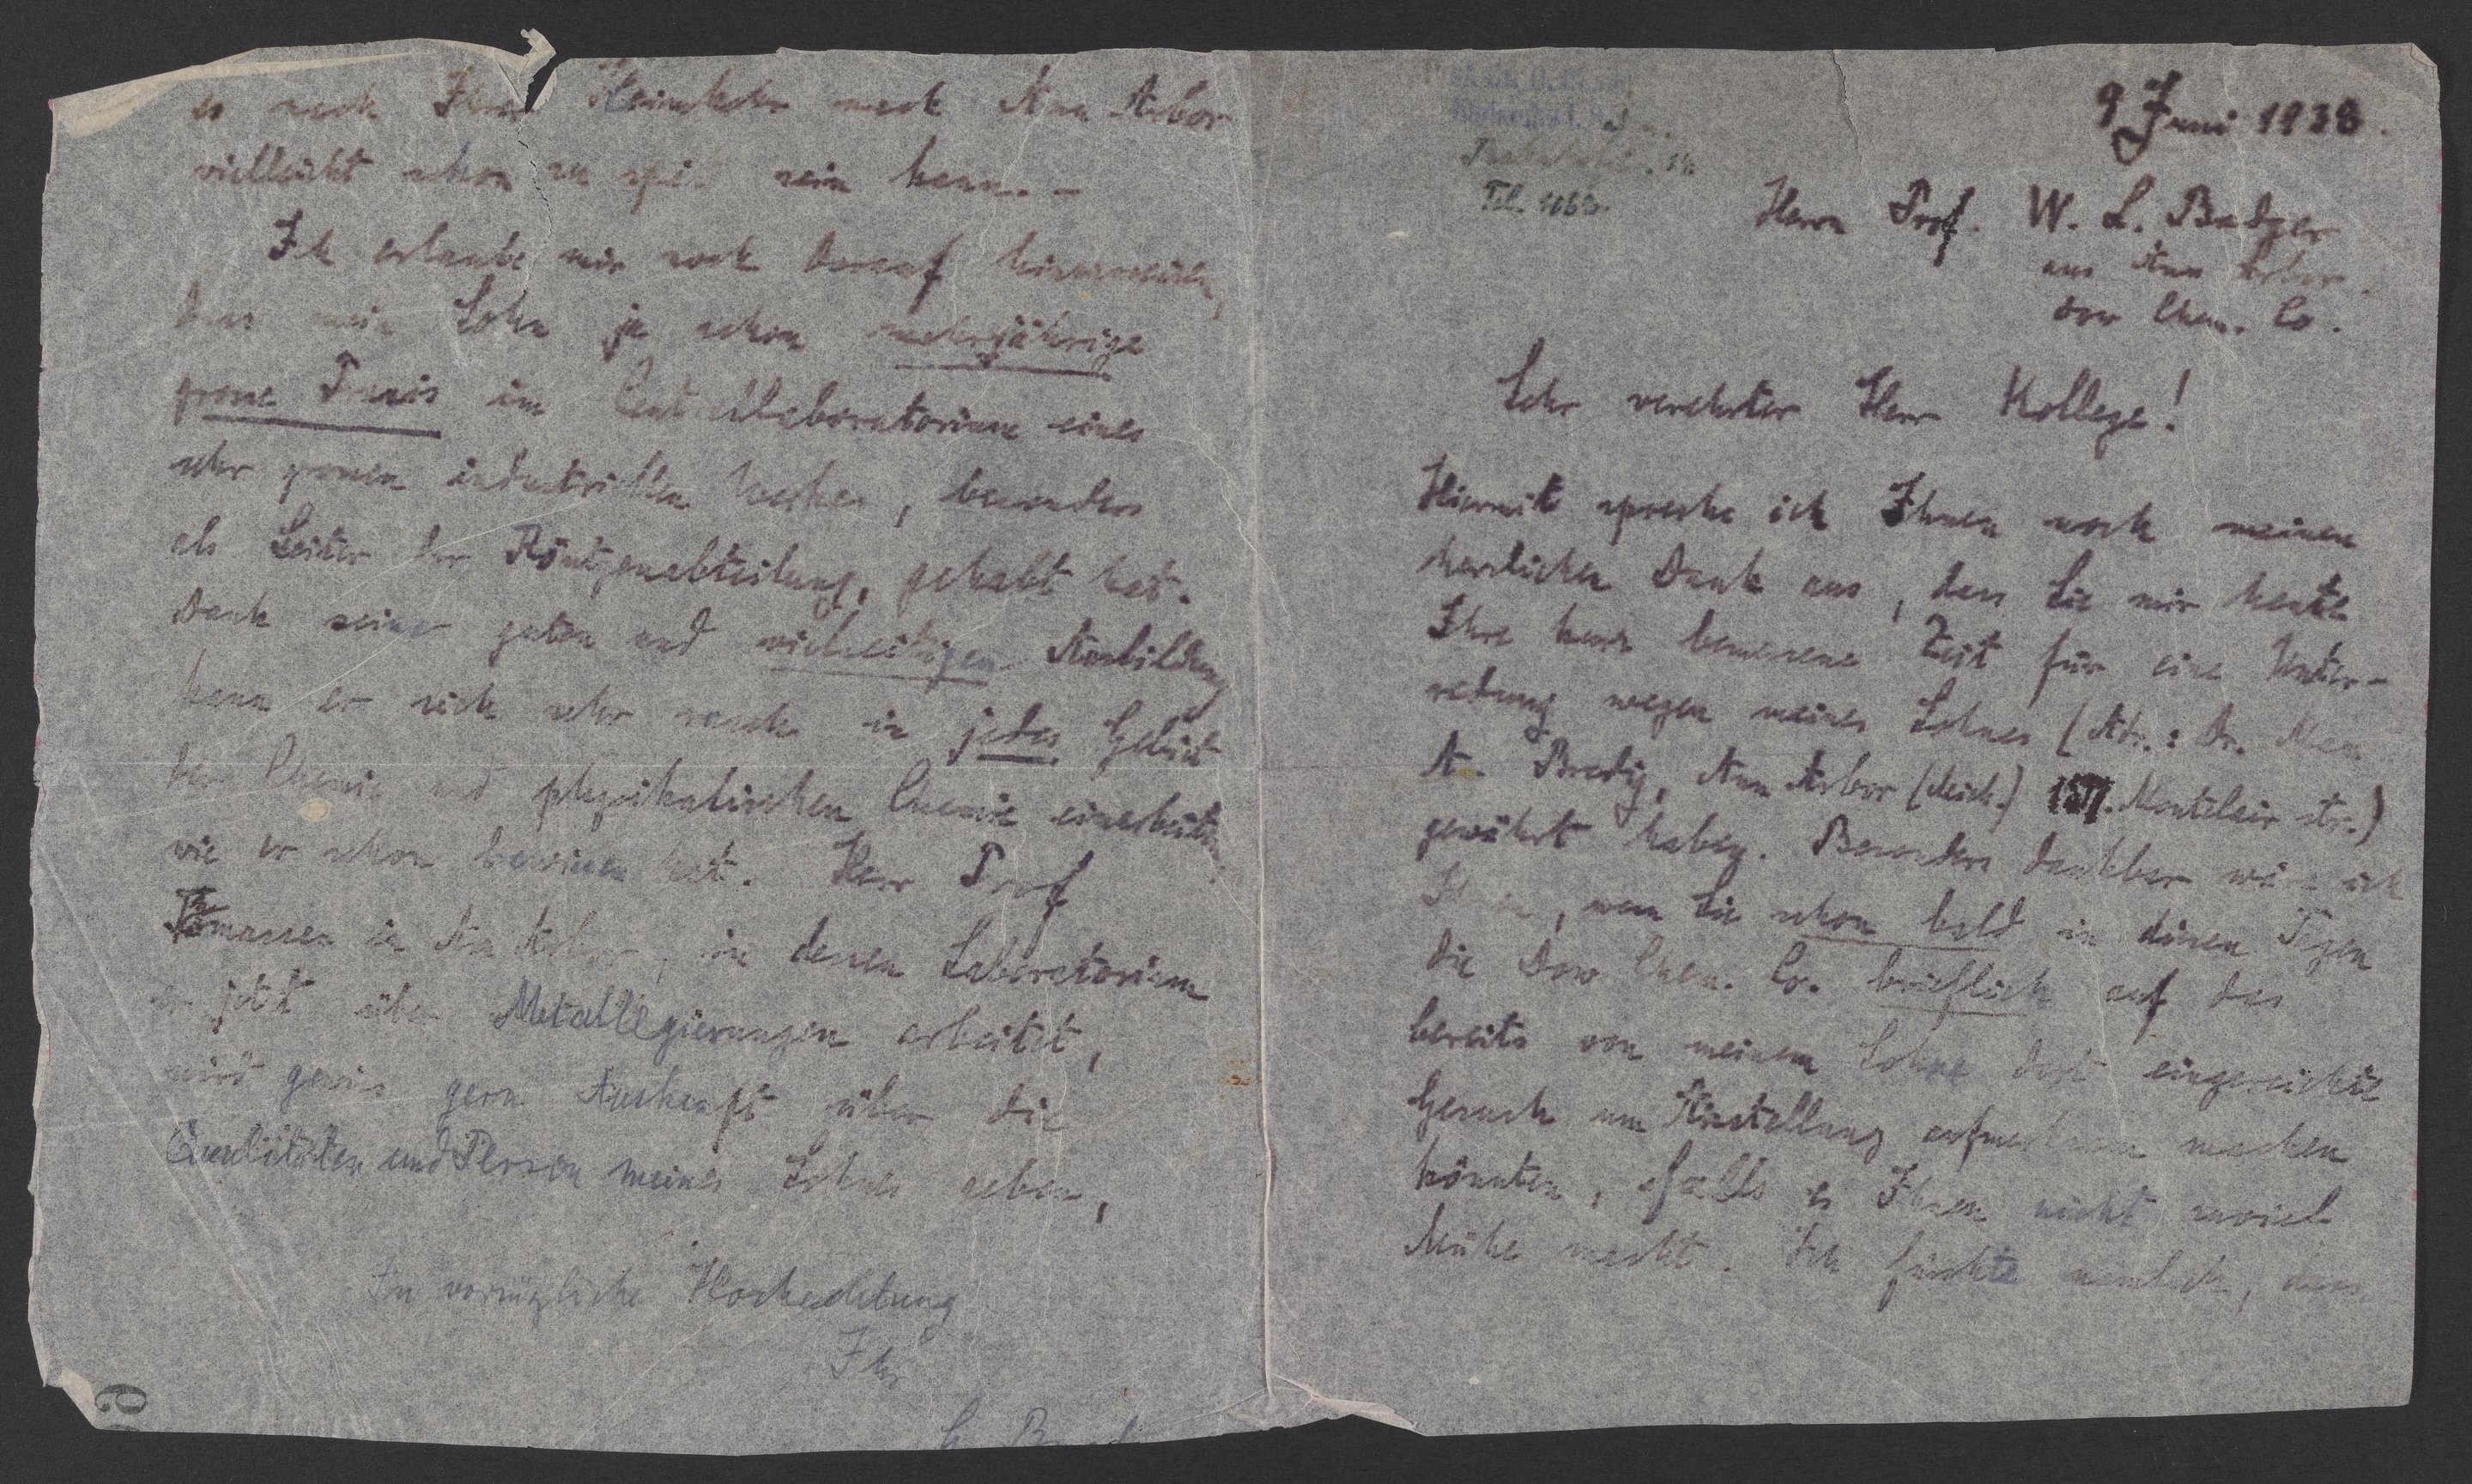 9 Juni 1938.
Tel. 4163.
Herrn Prof. W. L. Badger
aus Ann Arbor.
Dow Chem. Co.
Sehr verehrter Herr Kollege!
Hiermit spreche ich Ihnen noch meinen
herzlichen Dank aus, dass Sie mir heute
Ihre kurz bemessene Zeit für eine Unter-
redung wegen meines Sohnes (Adr.: Dr. Max
A. Bredig, Ann Arbor (Mich.) Montclair str.)
gewährt haben. Besonders dankbar wäre ich
Ihnen, wenn Sie schon bald in diesen Tagen
die Dow Chem. Co. brieflich auf das
bereits von meinem Sohne dort eingereichte
Gesuch um Anstellung aufmerksam machen
könnten, falls es Ihnen nicht zuviel
Mühe macht. Ich fürchte nämlich, dass
es nach Ihrer Heimkehr nach Ann Arbor
vielleicht schon zu spät sein kann. –
Ich erlaube mir noch darauf hinzuweisen,
dass mein Sohn ja schon mehrjährige
grosse Praxis im Centrallaboratorium eines
sehr grossen industriellen Werkes, besonders
als Leiter der Röntgenabteilung, gehabt hat.
Dank seiner guten und vielseitigen Ausbildung
kann er sich sehr rasch in jedes Gebiet
der Chemie und physikalischen Chemie einarbeiten,
wie er schon bewiesen hat. Herr Prof
Thomassen in Ann Arbor, in dessen Laboratorium
er jetzt über Metallegierungen arbeitet,
wird gewiss gern Auskunft über die
Qualitäten und Person meines Sohnes geben,
In vorzüglicher Hochachtung
Ihr
G. Bredig